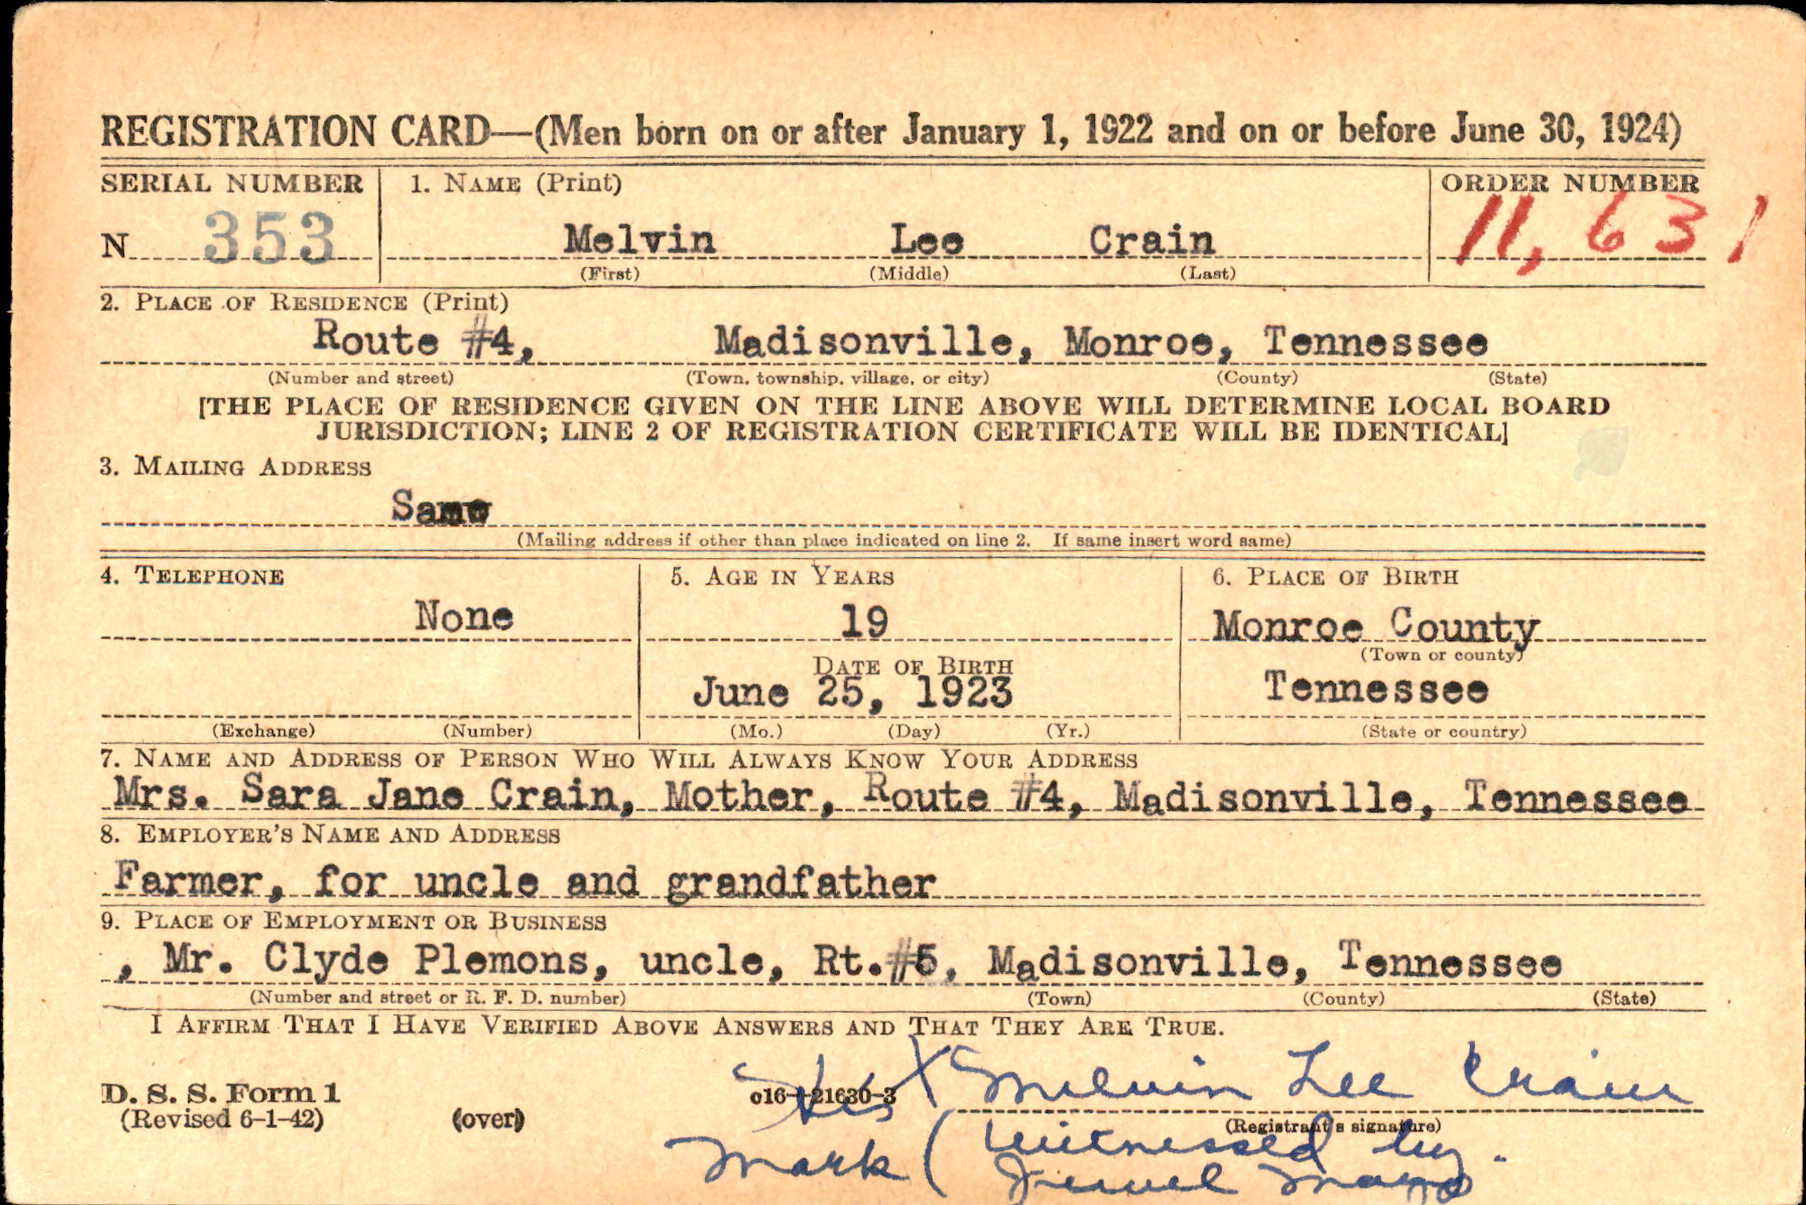 REGISTRATION CARD—(Men born on or after January 1, 1922 and on or before June 30, 1924)
SERIAL NUMBER
1. NAME (Print)
ORDER NUMBER
N 353
Melvin Lee Crain
11,631
(First) (Middle) (Last)
2. PLACE OF RESIDENCE (Print)
Route #4, Madisonville, Monroe, Tennessee
(Number and street) (Town, township, village, or city) (County) (State)
[THE PLACE OF RESIDENCE GIVEN ON THE LINE ABOVE WILL DETERMINE LOCAL BOARD
JURISDICTION; LINE 2 OF REGISTRATION CERTIFICATE WILL BE IDENTICAL]
3. MAILING ADDRESS
Same
(Mailing address if other than place indicated on line 2. If same insert word same)
4. TELEPHONE
5. AGE IN YEARS
6. PLACE OF BIRTH
None
19
Monroe County
(Town or county)
DATE OF BIRTH
June 25, 1923
Tennessee
(Exchange) (Number)
(Mo.) (Day) (Yr.)
(State or country)
7. NAME AND ADDRESS OF PERSON WHO WILL ALWAYS KNOW YOUR ADDRESS
Mrs. Sara Jane Crain, Mother, Route #4, Madisonville, Tennessee
8. EMPLOYER'S NAME AND ADDRESS
Farmer, for uncle and grandfather
9. PLACE OF EMPLOYMENT OR BUSINESS
, Mr. Clyde Plemons, uncle, Rt.#5, Madisonville, Tennessee
(Number and street or R. F. D. number) (Town) (County) (State)
I AFFIRM THAT I HAVE VERIFIED ABOVE ANSWERS AND THAT THEY ARE TRUE.
His X Melvin Lee Crain
D. S. S. Form 1
(Revised 6-1-42) (over)
c16-21630-3
(Registrant's signature)
Mark ( Witnessed by
Jewel